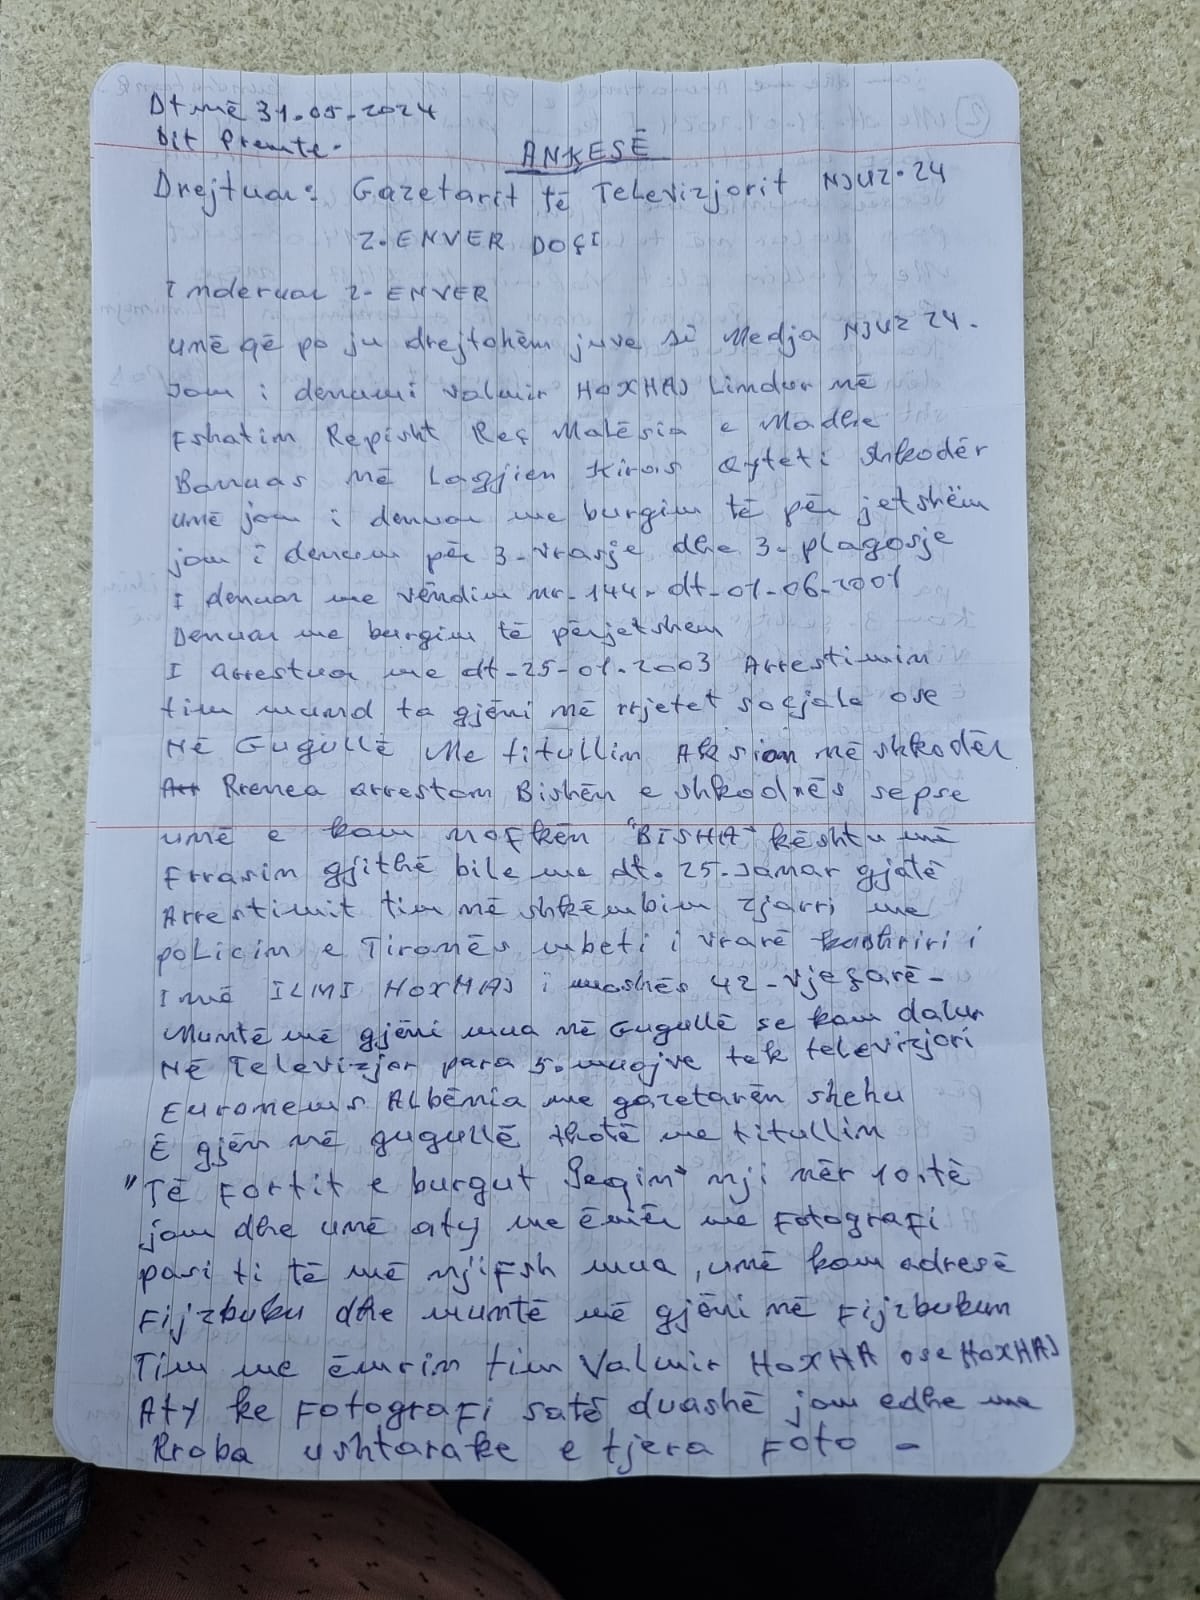 Dt më 31.05.2024
Dit Premte.
ANKESË
Drejtuar: Gazetarit të Televizjorit NJUZ.24
Z. ENVER DOÇI
I nderuar Z. ENVER
umë qê po ju drejtohëm juve si Medja NJUZ 24.
Jam i denumi Valmir HOXHAJ Limdur më
Fshatim Repisht Reç Malësia e Madhe
Banuas në Lagjien Kiras Qyteti Shkodër
umë jam i denuar me burgim të për jetshëm
jam i denuem për 3-vrasje dhe 3-plagosje
I denuar me vëndim nr-144-dt-01-06-2001
Denuar me burgim të përjetshem
I arrestua me dt-25-01-2003 Arrestimin
tim mund ta gjëni në rrjetet soçjale ose
Në Gugullë Me titullin Aksion në shkodër
Rrenea arrestom Bishën e shkodrës sepse
umë e kam nofkën "BISHA" kështu më
Frrasin gjithë bile me dt. 25-Janar gjatë
Arrestimit tim në shkëmbim zjarri me
policin e Tiranës mbeti i vrarë kushriri i
I më ILMI HOXHAJ i moshës 42-vjeçarë-
Muntë më gjëni mua në Gugullë se kam dalur
Në Televizjor para 5.muajve tek televizjori
Euronews Albënia me gazetarën shehu
E gjën në gugullë thotë me titullin
"Të Fortit e burgut Peqin" nji nër 10.të
jam dhe umë aty me ëmër me Fotografi
pasi ti të më njifsh mua, umë kam adresë
Fijzbuku dhe muntë më gjëni në Fijzbukun
Tim me ëmrin tim Valmir HOXHA ose HOXHAJ
Aty ke Fotografi satë duashë jam edhe me
Rroba ushtarake e tjera Foto -